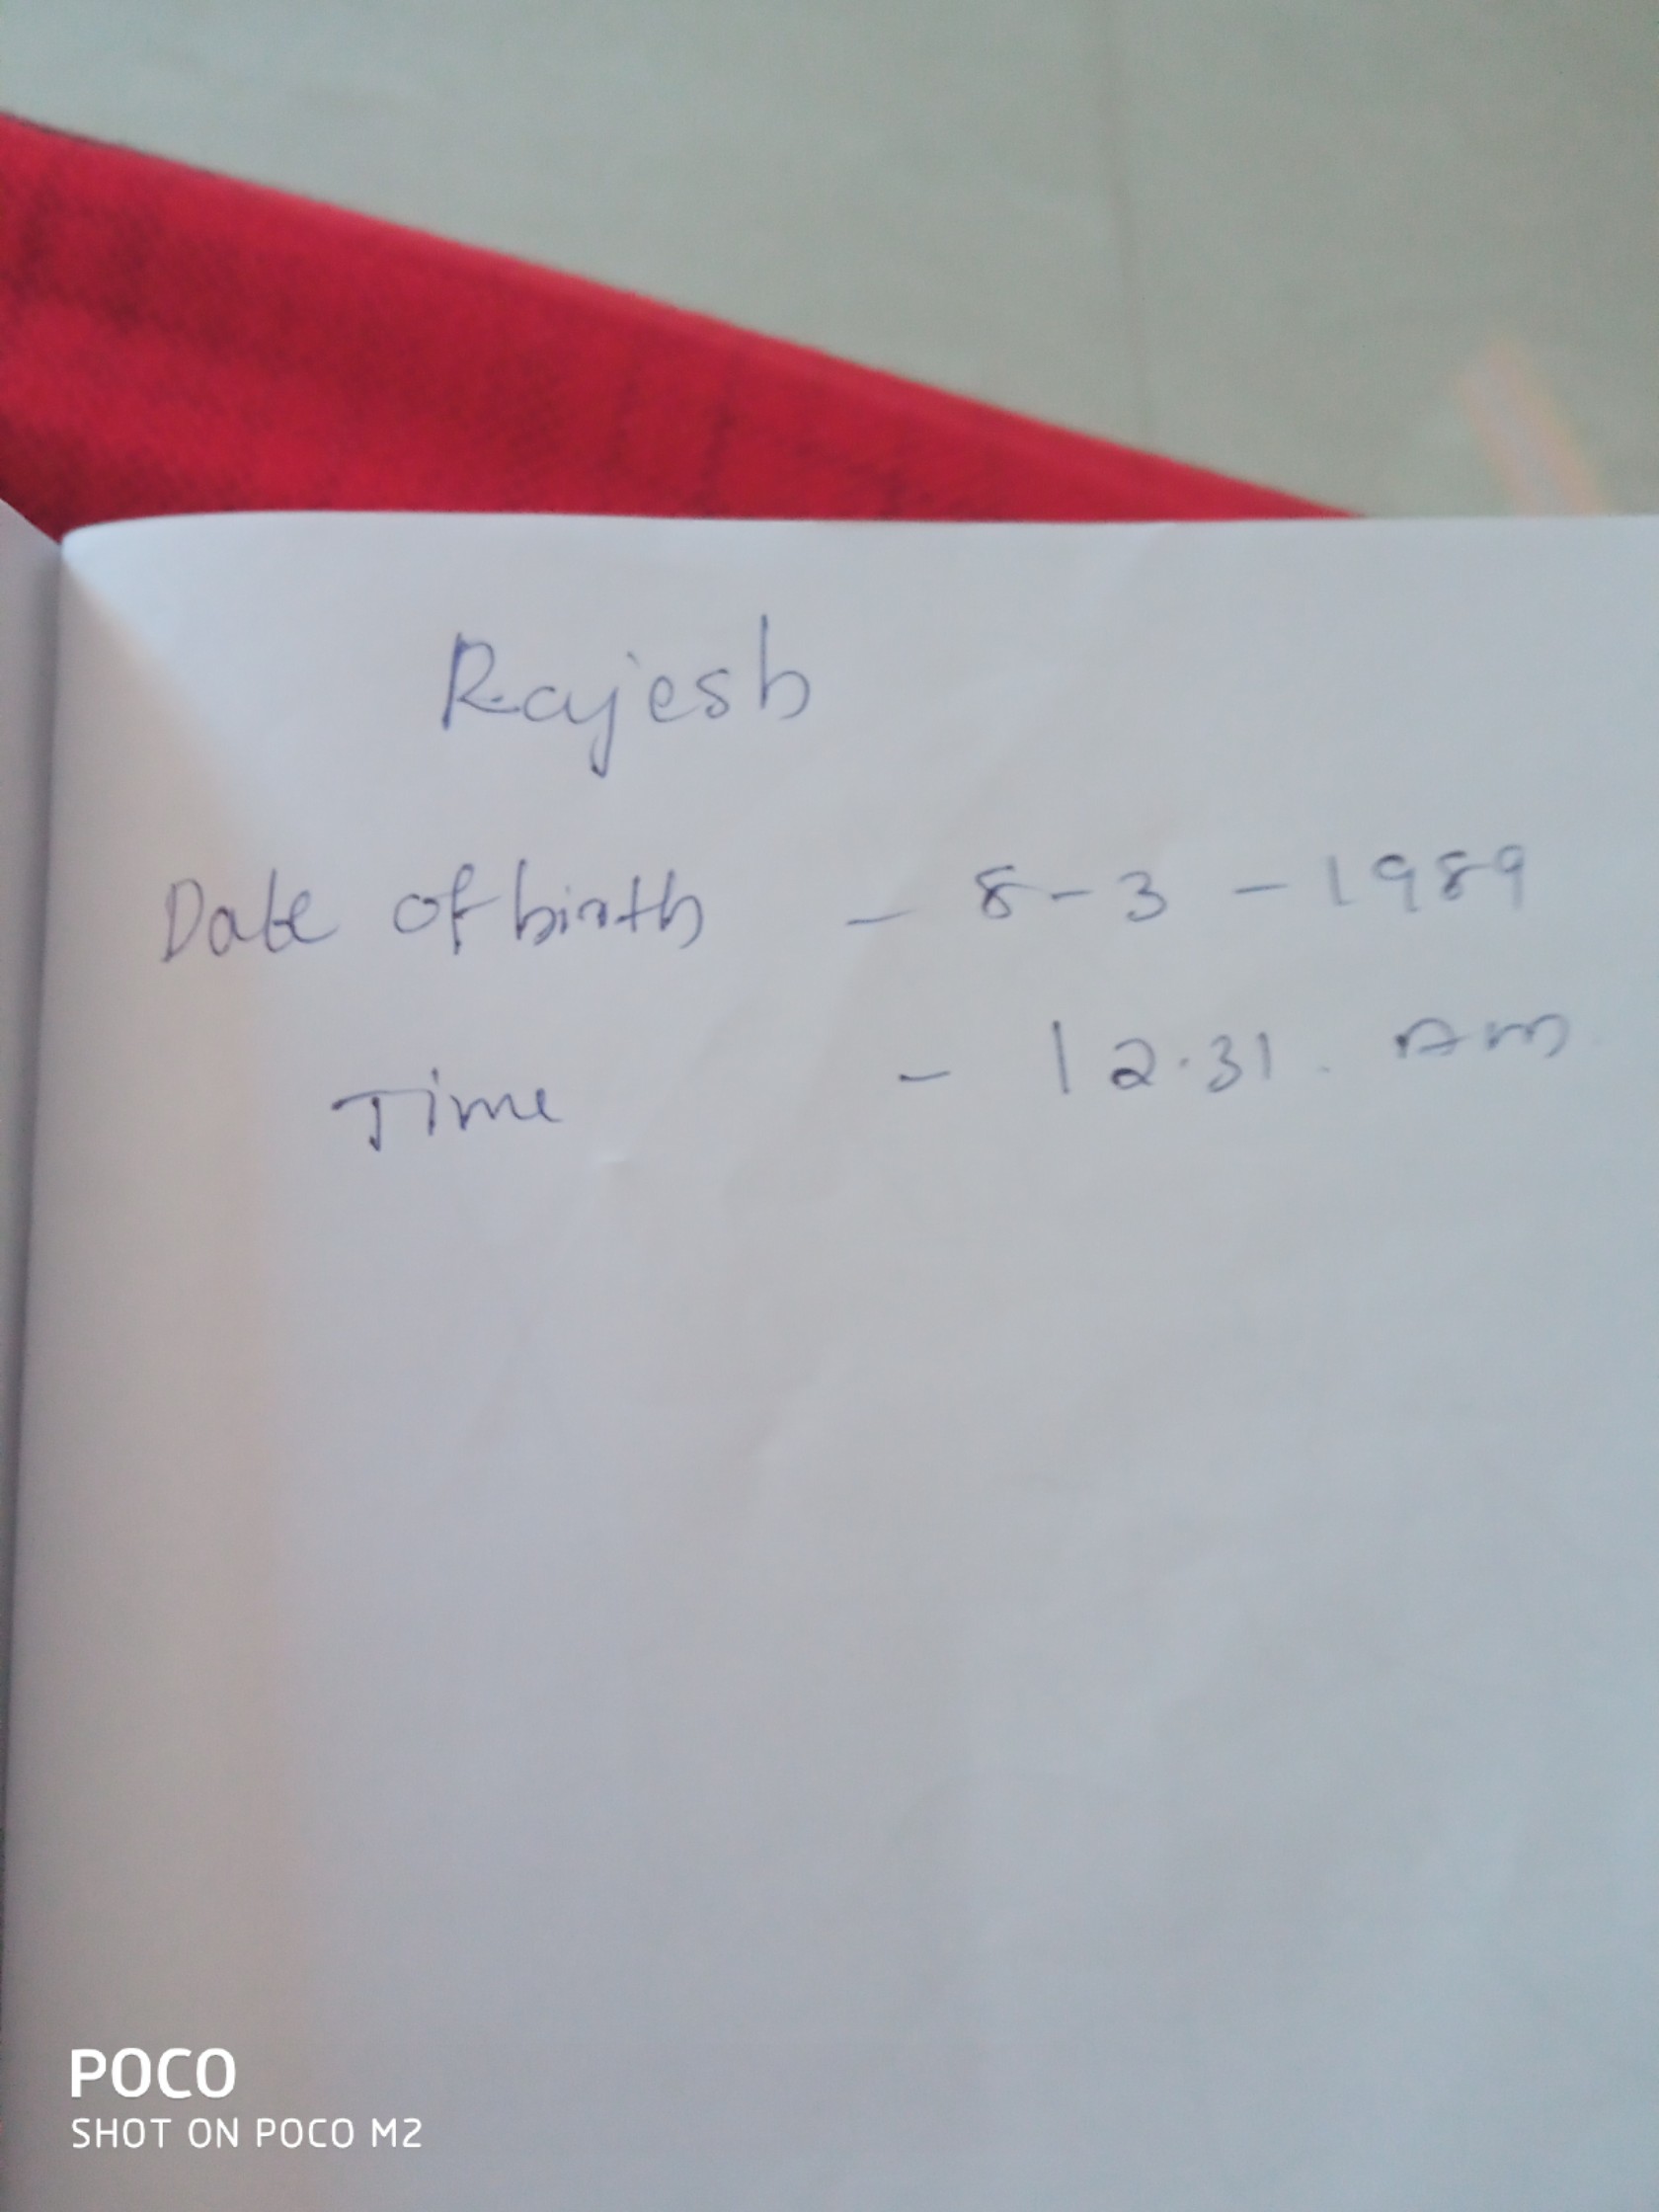 Rajesh
Date of birth - 8-3-1989
Time - 12.31. Am
POCO
SHOT ON POCO M2